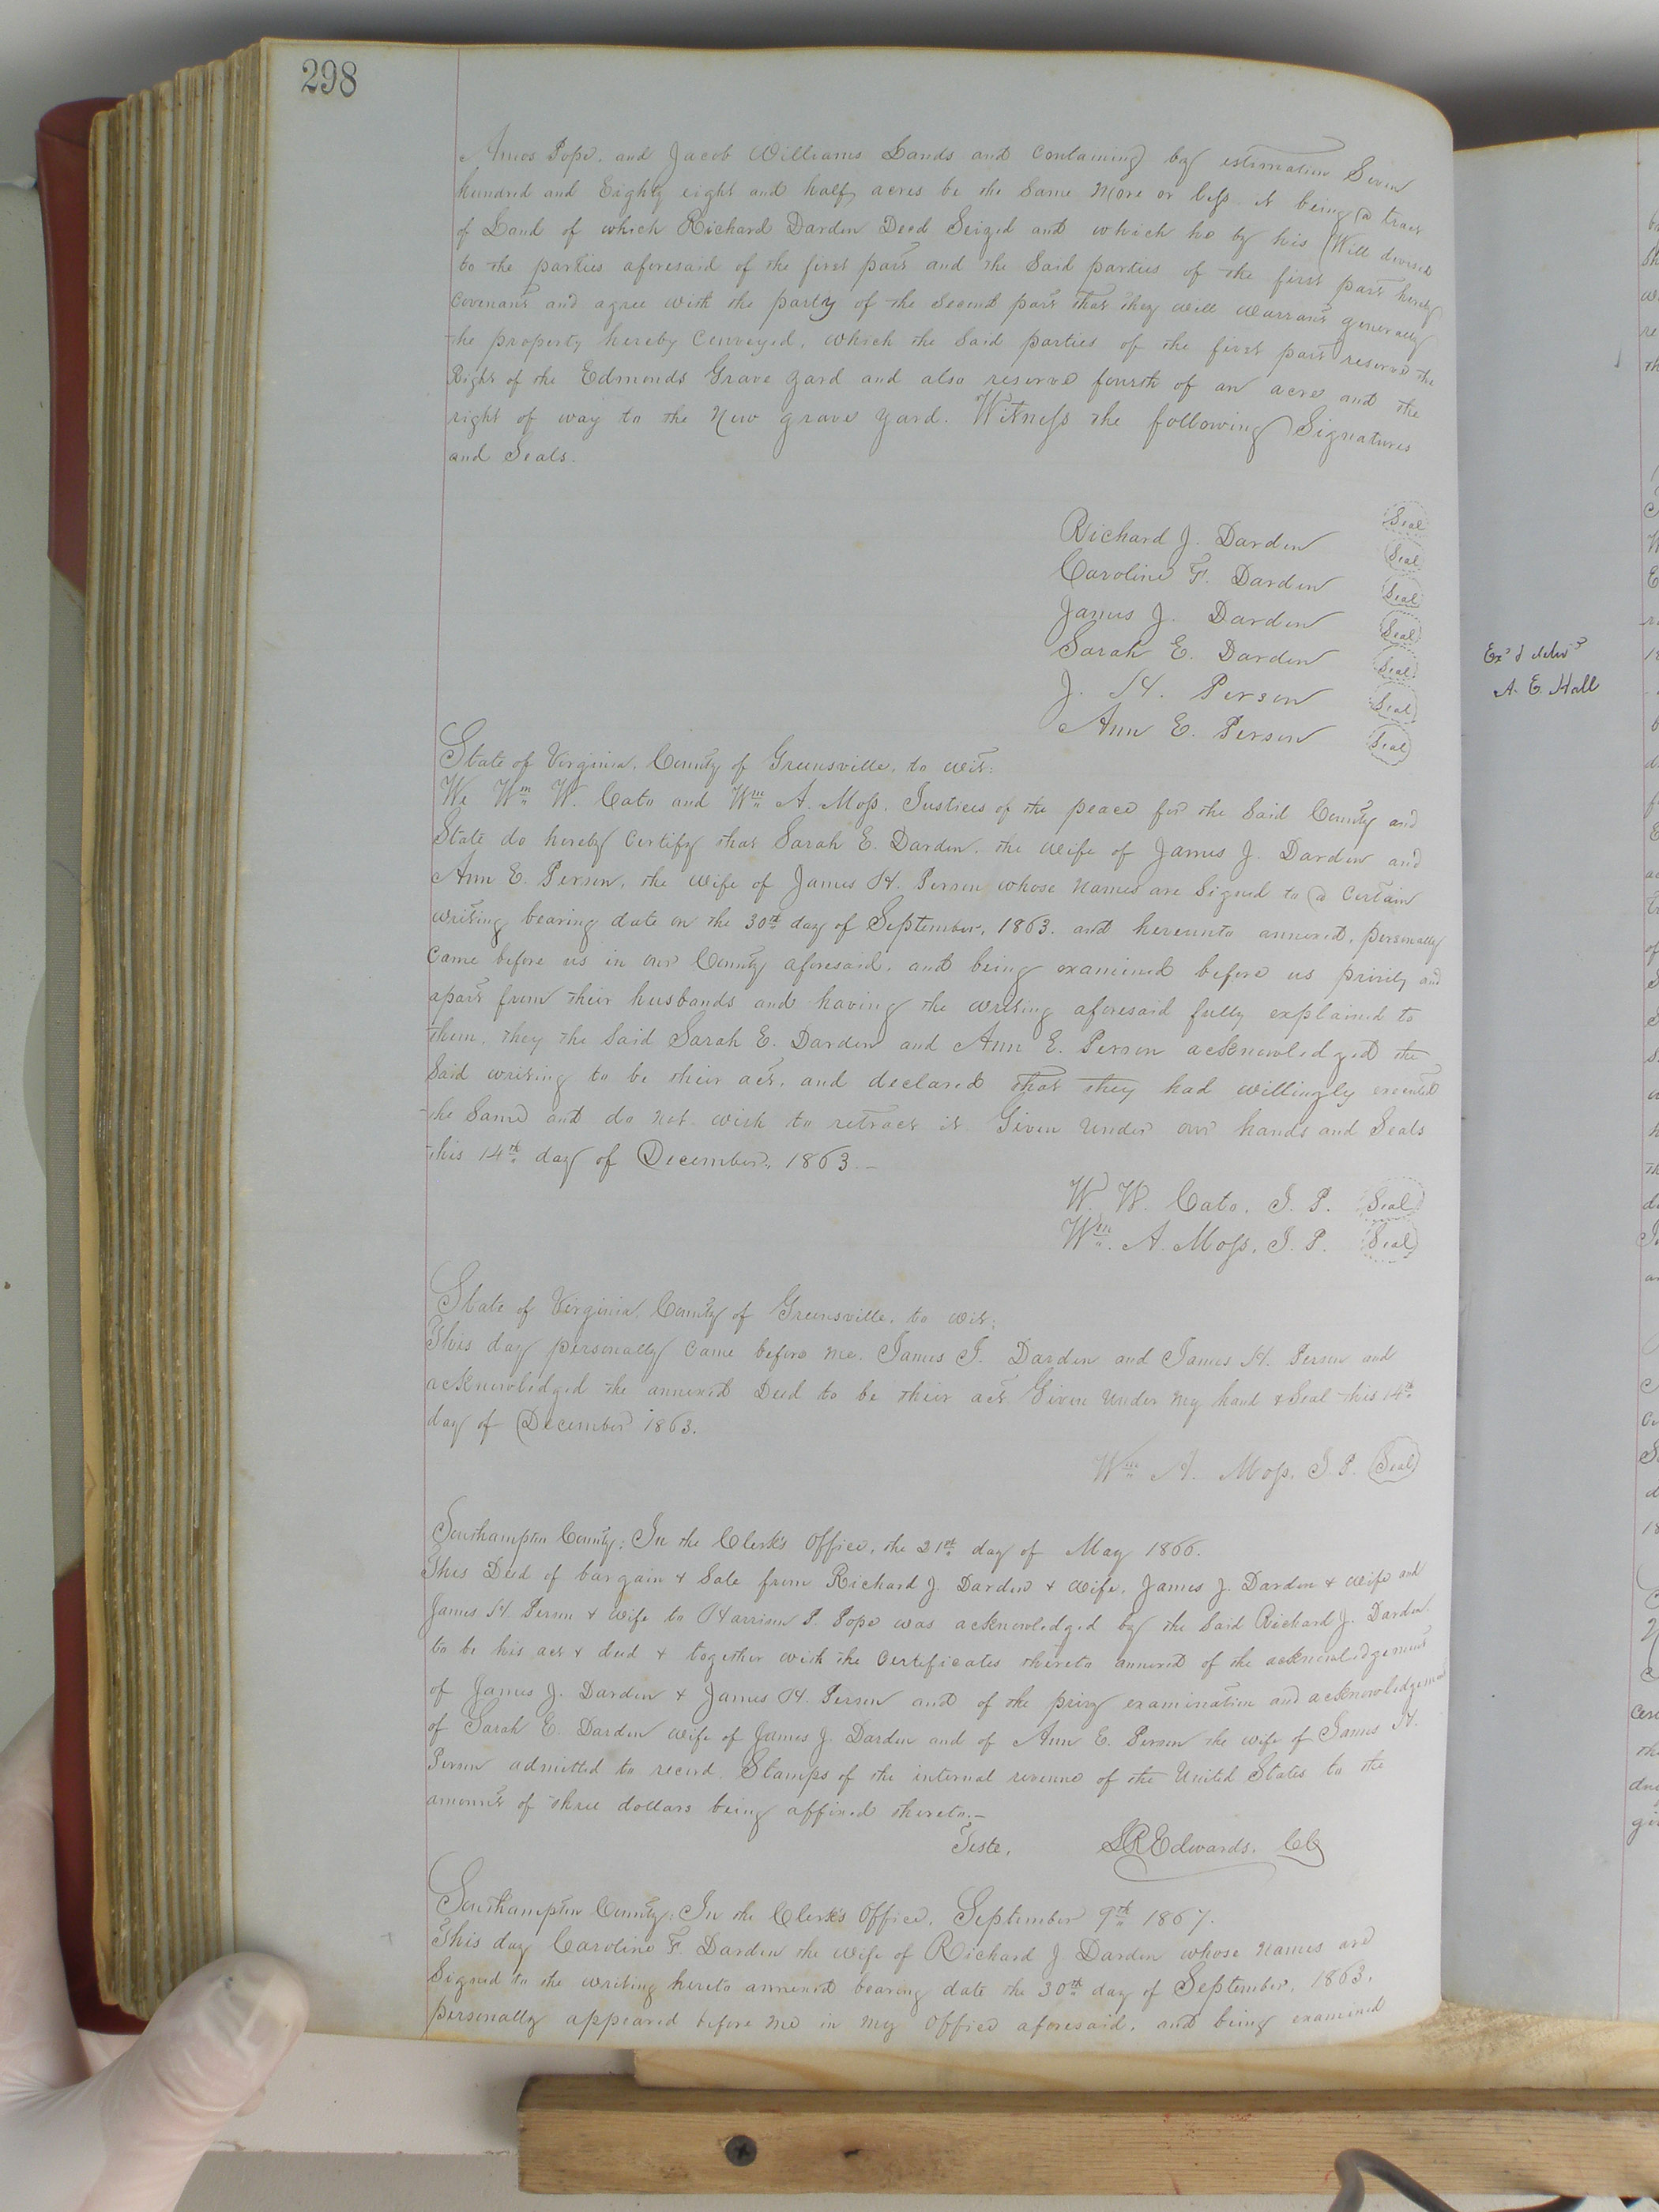 298
Amos Pope, and Jacob Williams Lands and Containing by estimation Seven
hundred and Eighty eight and half acres be the Same More or less it being a tract
of Land of which Richard Darden Decd Seized and which he by his Will devised
to the parties aforesaid of the first part and the Said parties of the first part hereby
Covenant and agree with the party of the Second part that they will warrant generally
the property hereby Conveyed, which the Said parties of the first part reserve the
Right of the Edmonds Grave yard and also reserve fourth of an acre and the
right of way to the New grave yard. Witness the following Signatures
and Seals.
Richard J. Darden Seal
Caroline F. Darden Seal
James J. Darden Seal
Sarah E. Darden Seal
J. H. Person Seal
Ann E. Person Seal
Seal
State of Virginia, County of Greensville, to wit:
We Wm W. Cato and Wm A. Moss, Justices of the peace for the Said County and
State do hereby Certify that Sarah E. Darden, the wife of James J. Darden and
Ann E. Person, the wife of James H. Person whose Names are Signed to a Certain
writing bearing date on the 30th day of September, 1863. and hereunto annexed, personally
Came before us in our County aforesaid, and being examined before us privily and
apart from their husbands and having the writing aforesaid fully explained to
them, they the Said Sarah E. Darden and Ann E. Person acknowledged the
Said writing to be their act, and declared that they had willingly executed
the Same and do not wish to retract it Given Under our hands and Seals
this 14th day of December, 1863.—
W. W. Cato, J. P. Seal
Wm. A. Moss, J. P. Seal
State of Virginia, County of Greensville, to wit:
This day personally Came before me, James J. Darden and James H. Person and
acknowledged the annexed Deed to be their act Given Under My hand & Seal this 14th
day of December 1863.
Wm A. Moss, J. P. Seal
Southampton County: In the Clerk's Office, the 21st day of May 1866.
This Deed of bargain & Sale from Richard J. Darden & wife, James J. Darden & wife and
James H. Person & wife to Harrison P. Pope was acknowledged by the Said Richard J. Darden
to be his act & deed & together with the Certificates thereto annexed of the acknowledgement
of James J. Darden & James H. Person and of the privy examination and acknowledgement
of Sarah E. Darden wife of James J. Darden and of Ann E. Person the wife of James H.
Person admitted to record. Stamps of the internal revenue of the United States to the
amount of three dollars being affixed thereto.—
Teste, L R Edwards, CC
Southampton County: In the Clerk's Office, September 9th 1867.
This day Caroline F. Darden the wife of Richard J Darden whose Names are
Signed to the writing hereto annexed bearing date the 30th day of September, 1863,
personally appeared before me in my Office aforesaid, and being examined
A. E. Hall